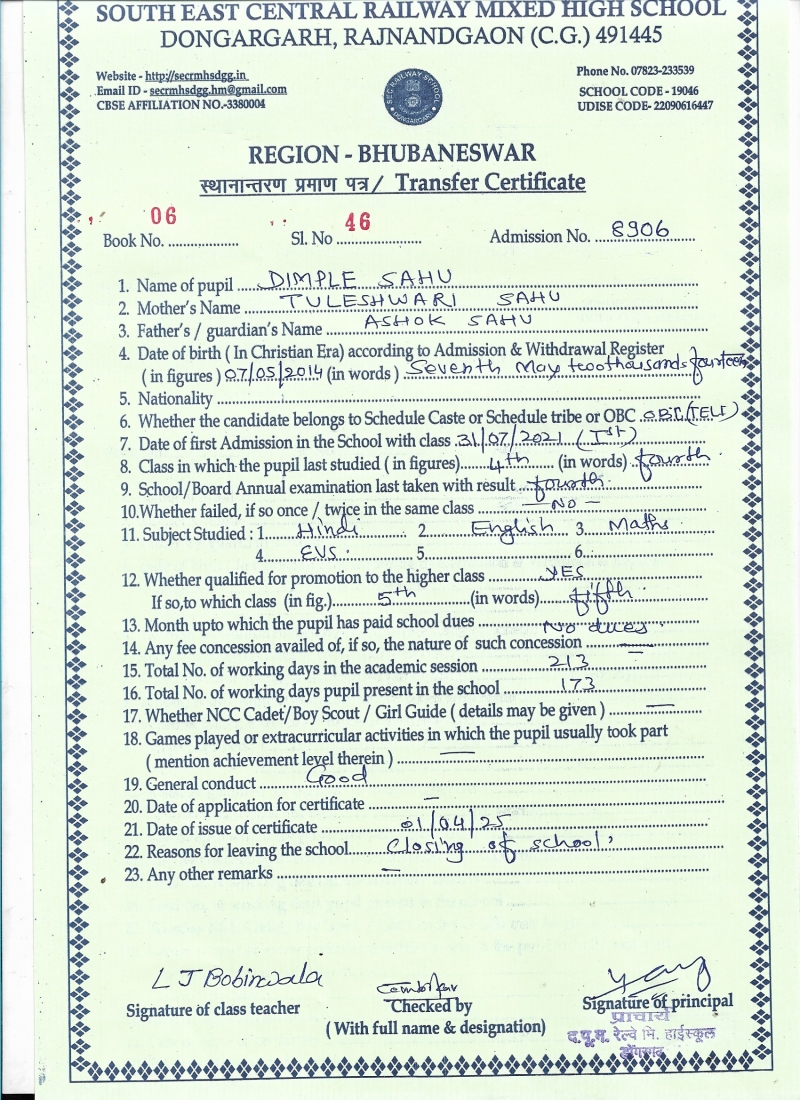 SOUTH EAST CENTRAL RAILWAY MIXED HIGH SCHOOL
DONGARGARH, RAJNANDGAON (C.G.) 491445
Website - http://secrmhsdgg.in
Phone No. 07823-233539
Email ID - secrmhsdgg.hm@gmail.com
SCHOOL CODE - 19046
CBSE AFFILIATION NO.-3380004
UDISE CODE- 22090616447
SEC RAILWAY SCHOOL
DONGARGARH
REGION - BHUBANESWAR
स्थानान्तरण प्रमाण पत्र / Transfer Certificate
Book No. 06 Sl. No 46 Admission No. 8906
1. Name of pupil DIMPLE SAHU
2. Mother's Name TULESHWARI SAHU
3. Father's / guardian's Name ASHOK SAHU
4. Date of birth ( In Christian Era) according to Admission & Withdrawal Register
( in figures ) 07/05/2014 (in words ) Seventh May twothousands fourteen
5. Nationality
6. Whether the candidate belongs to Schedule Caste or Schedule tribe or OBC OBC (TELI)
7. Date of first Admission in the School with class 31/07/2021 (Ist)
8. Class in which the pupil last studied ( in figures) 4th (in words) fourth.
9. School/Board Annual examination last taken with result fourth.
10.Whether failed, if so once / twice in the same class — No —
11. Subject Studied : 1. Hindi 2. English 3. Maths.
4. EVS. 5. 6.
12. Whether qualified for promotion to the higher class YES
If so,to which class (in fig.) 5th (in words) fifth.
13. Month upto which the pupil has paid school dues No dues.
14. Any fee concession availed of, if so, the nature of such concession —
15. Total No. of working days in the academic session 213
16. Total No. of working days pupil present in the school 173
17. Whether NCC Cadet/Boy Scout / Girl Guide ( details may be given ) —
18. Games played or extracurricular activities in which the pupil usually took part
( mention achievement level therein ) —
19. General conduct Good
20. Date of application for certificate —
21. Date of issue of certificate 01/04/25
22. Reasons for leaving the school Closing of school,
23. Any other remarks —
L J Bobinwala
Signature of class teacher
Checked by
Signature of principal
( With full name & designation)
प्राचार्य
द.पू.म. रेल्वे मि. हाईस्कूल
डोंगरगढ़